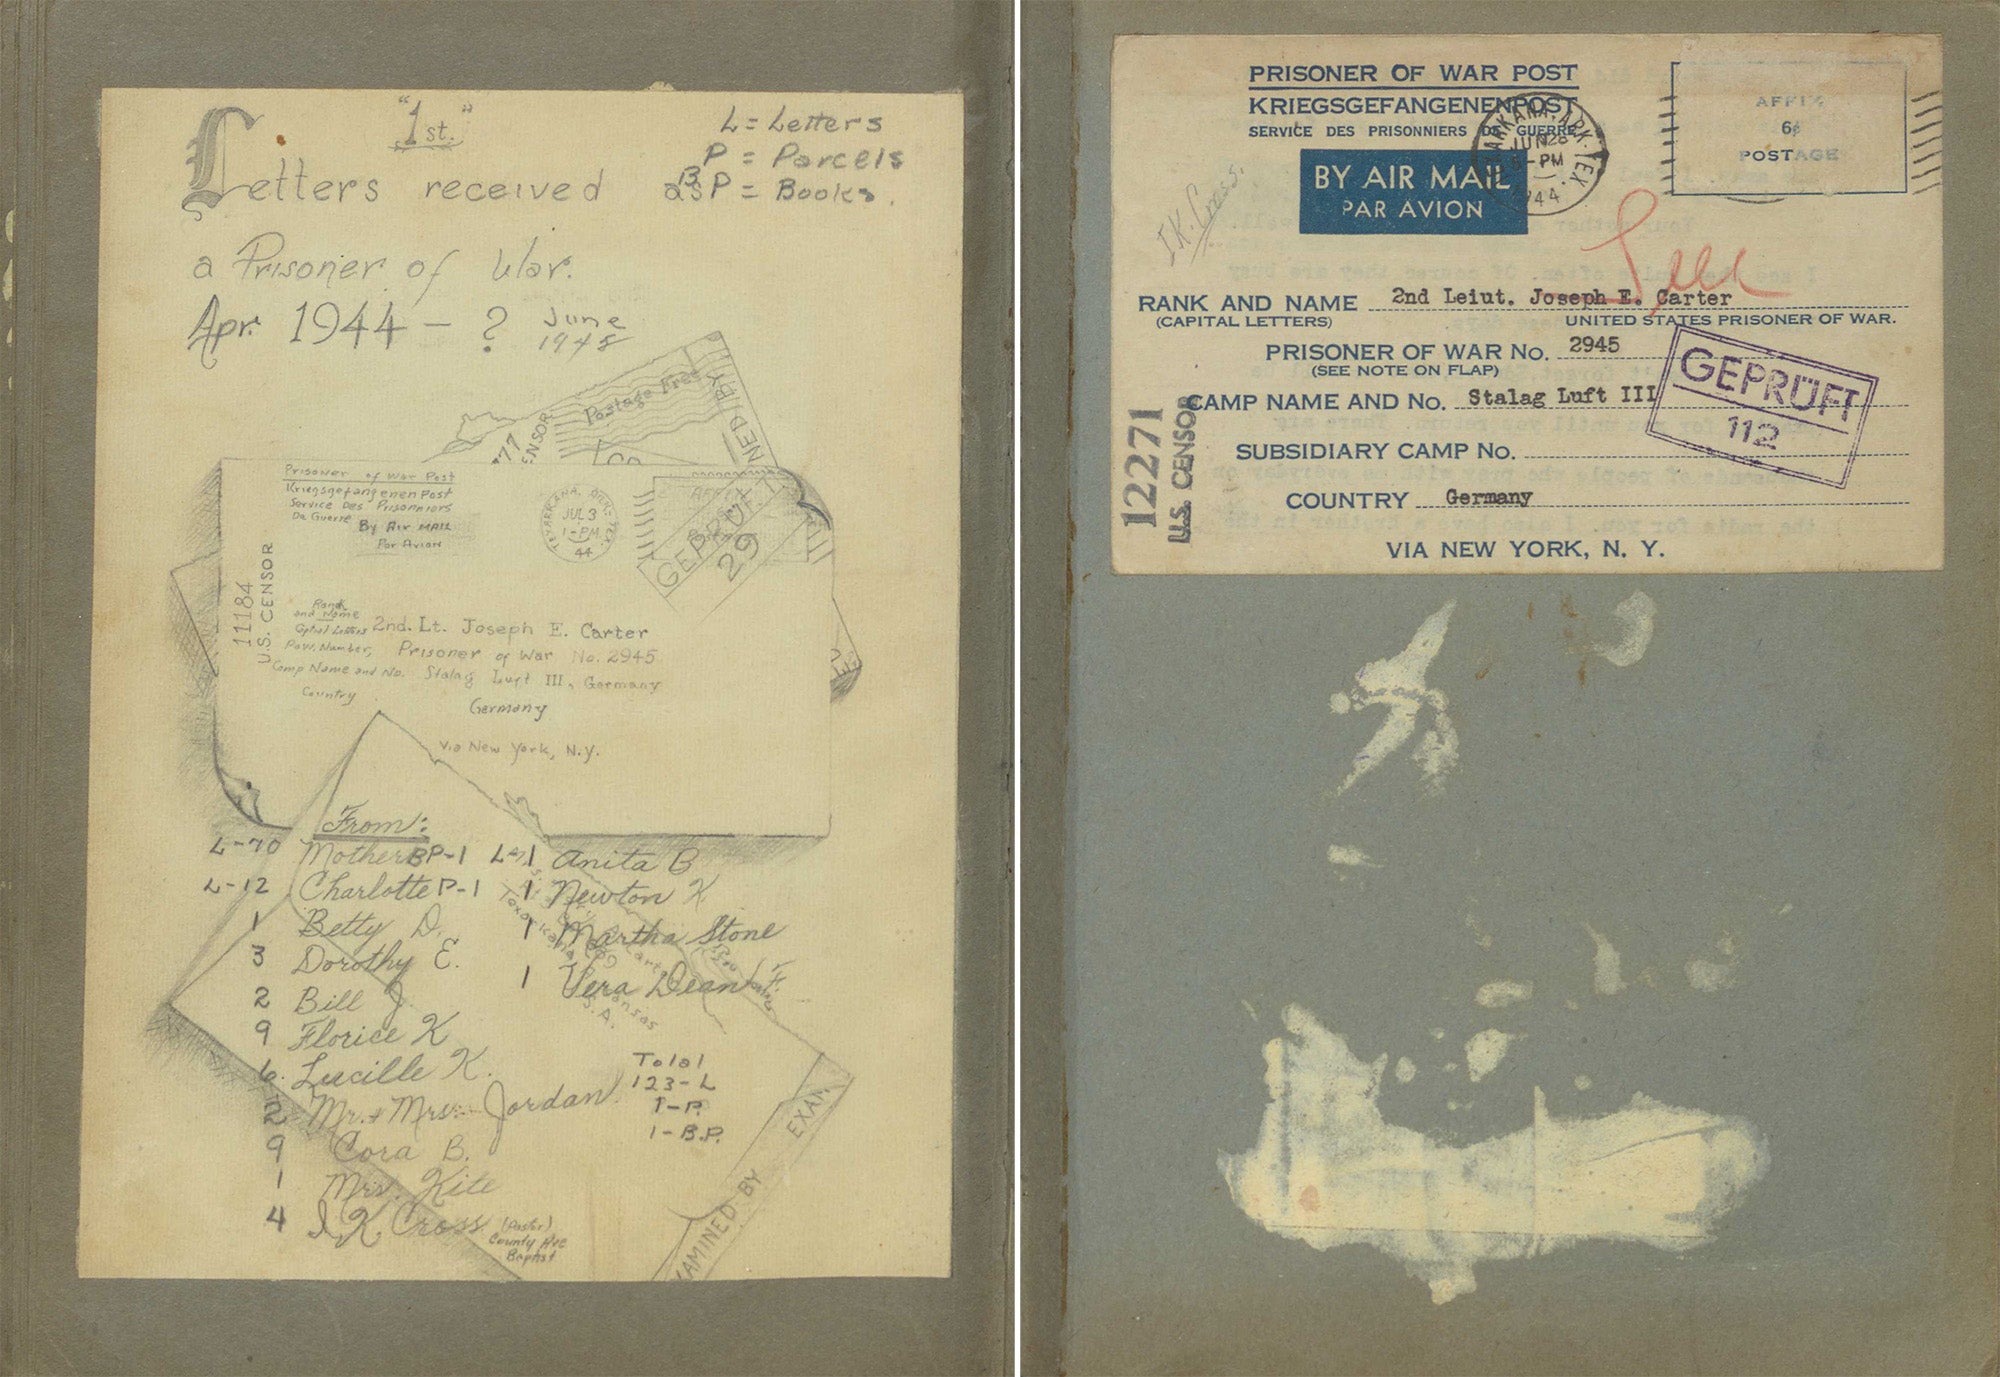 "1st."
Letters received
as
a Prisoner of War.
Apr. 1944 - ? June
1945
L = Letters
P = Parcels
BP = Books.
Postage Free
CENSOR
Prisoner of War Post
Kriegsgefangenen Post
Service Des Prisonniers
De Guerre
By Air MAIL
Par Avion
TEXARKANA, ARK-TEX.
JUL 3
1-PM
44
AFFIX
GEPRÜFT
29
11184
U.S. CENSOR
Rank
and Name
Capital Letters
2nd. Lt. Joseph E. Carter
P.o.W. Number, Prisoner of War No. 2945
Camp Name and No. Stalag Luft III, Germany
Country
Germany
Via New York, N.Y.
From:
L-70 Mother BP-1
L-12 Charlotte P-1
1 Betty D.
3 Dorothy E.
2 Bill J
9 Florice K
6. Lucille K.
2 Mr. + Mrs. Jordan
9 Cora B.
1 Mrs. Kite
4 I K Cross (Pastor)
County Ave
Baptist
L-1 Anita B
1 Newton K
1 Martha Stone
1 Vera Dean F.
Texarkana
Arkansas
Total
123-L
1-P.
1-B.P.
EXAM
EXAMINED BY
PRISONER OF WAR POST
KRIEGSGEFANGENENPOST
SERVICE DES PRISONNIERS DE GUERRE
BY AIR MAIL
PAR AVION
TEXARKANA, ARK.-TEX.
JUN 28
5-PM
1944
AFFIX
6¢
POSTAGE
I.K. Cross.
RANK AND NAME 2nd Leiut. Joseph E. Carter
(CAPITAL LETTERS) UNITED STATES PRISONER OF WAR.
PRISONER OF WAR No. 2945
(SEE NOTE ON FLAP)
CAMP NAME AND No. Stalag Luft III
SUBSIDIARY CAMP No.
COUNTRY Germany
VIA NEW YORK, N. Y.
GEPRÜFT
112
12271
U.S. CENSOR